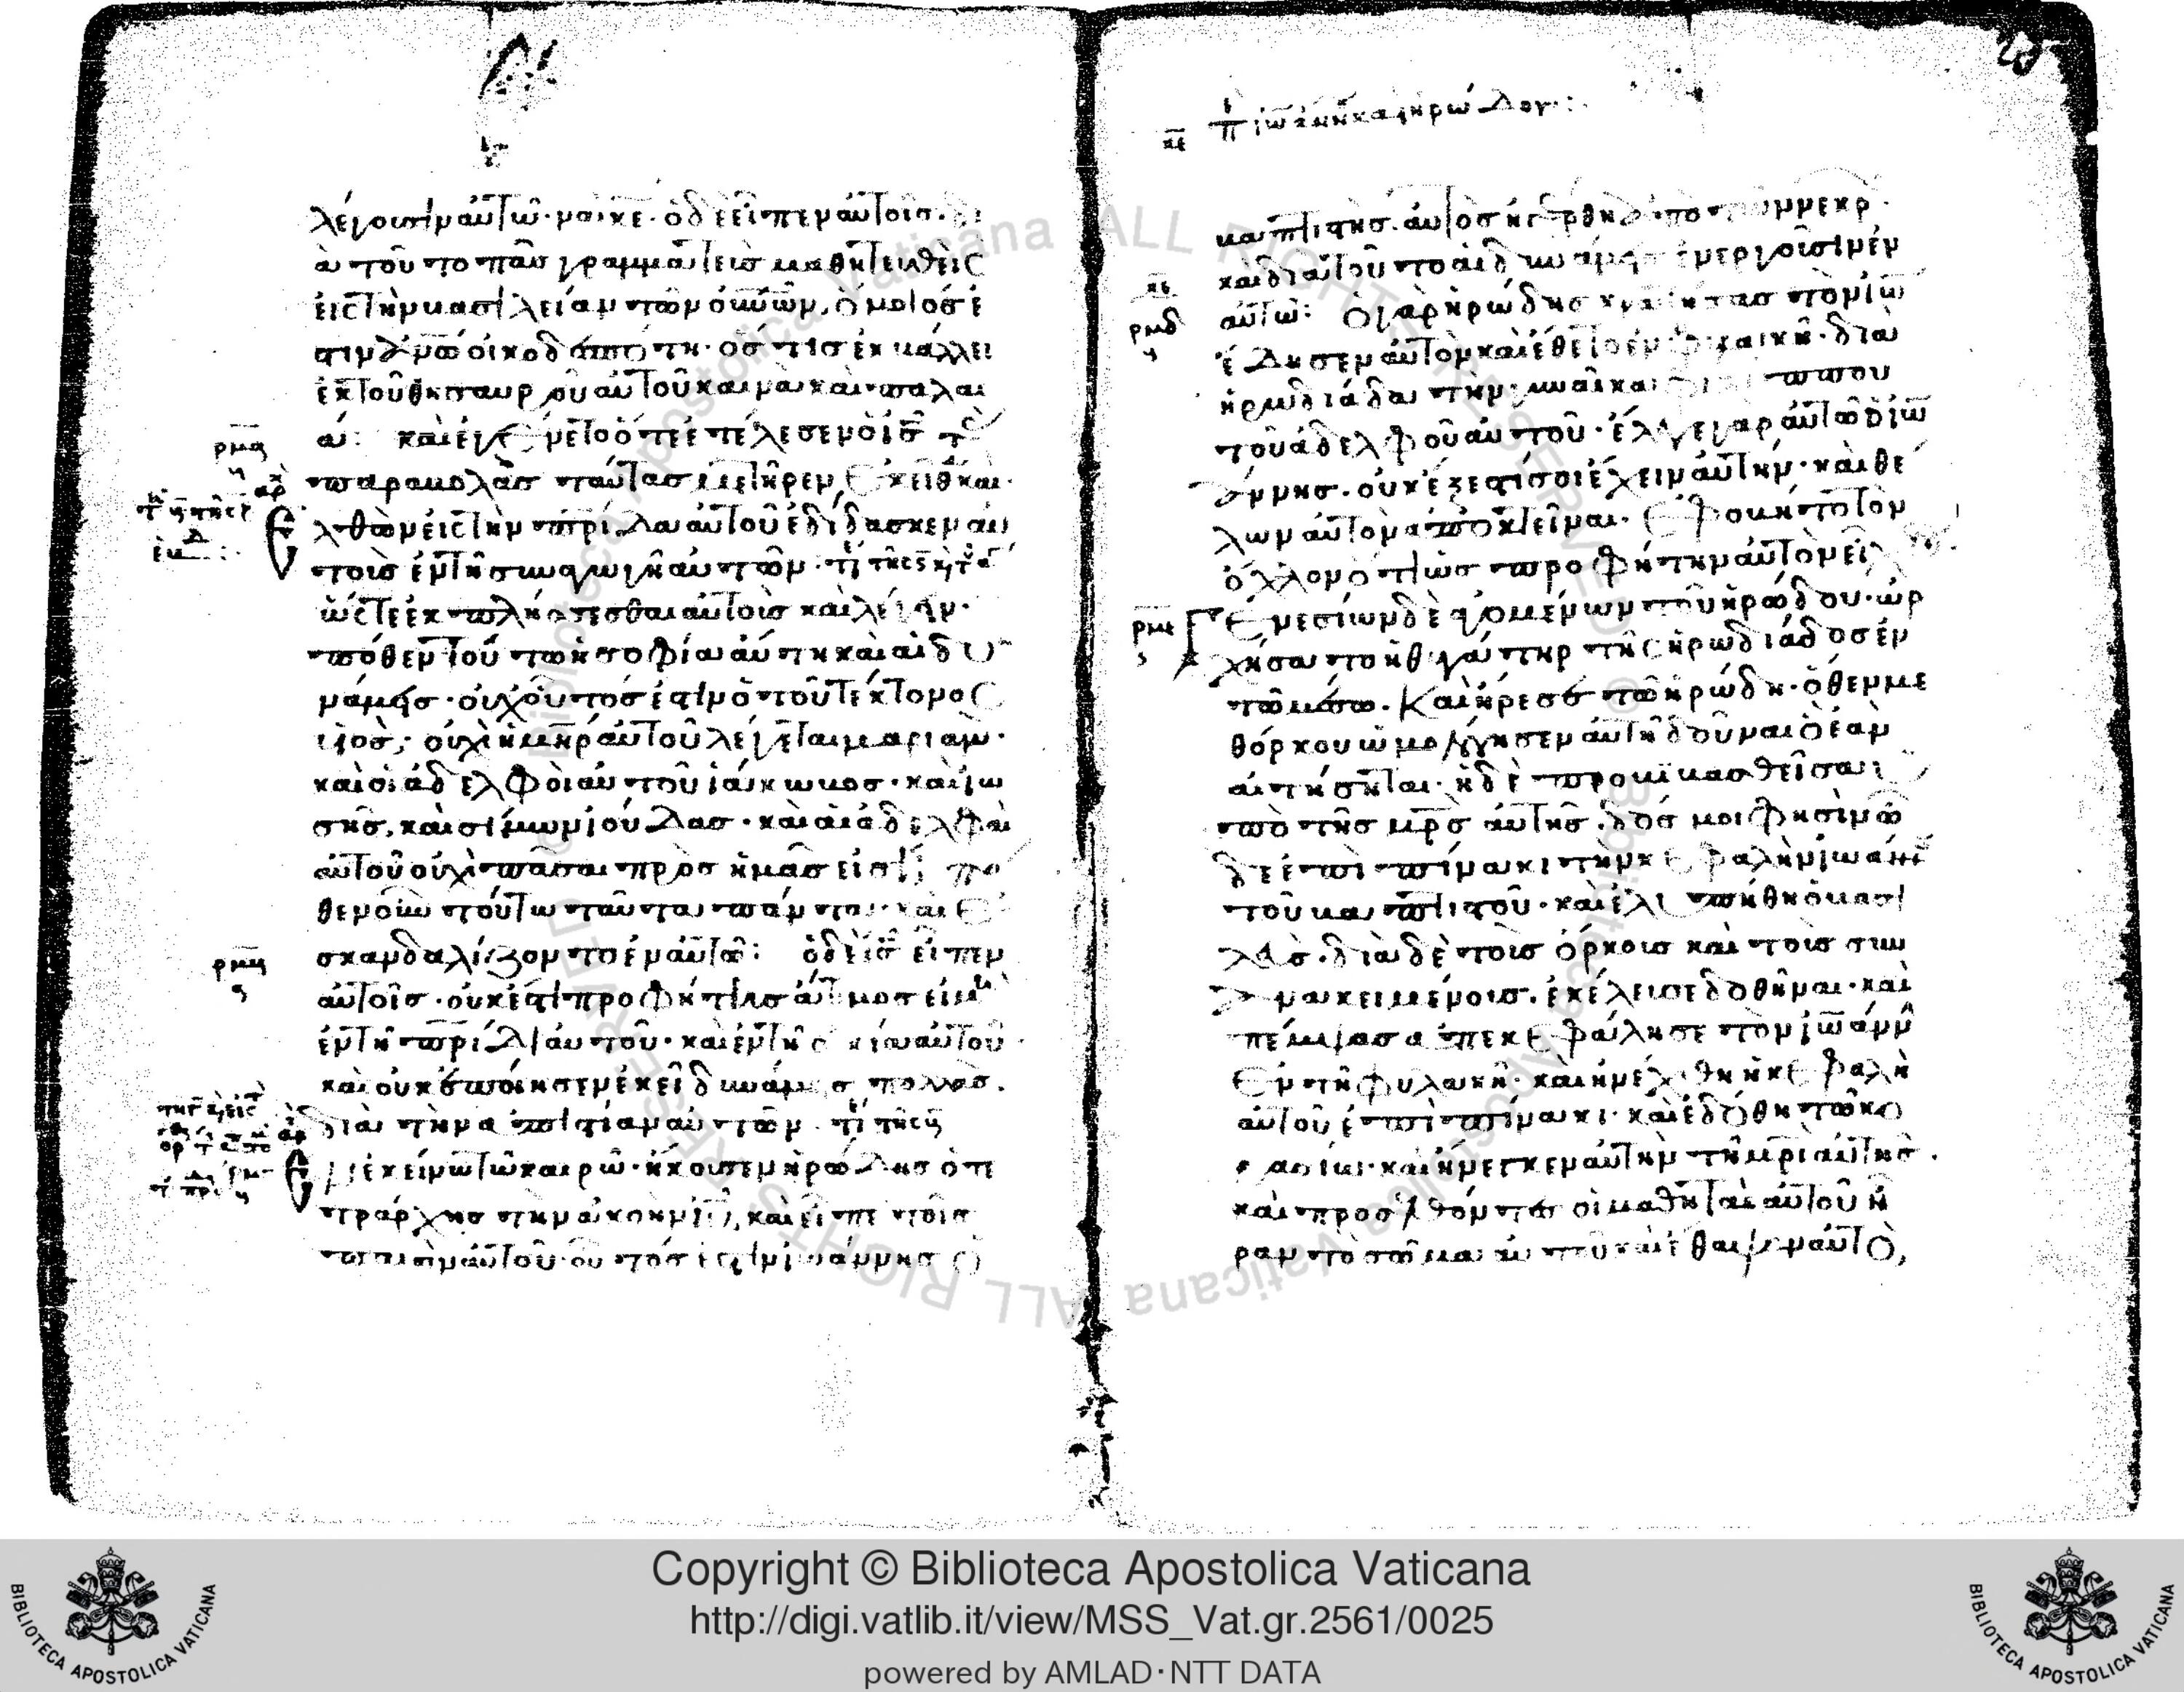 λέγουσιν αὐτῶ· ναὶ κε· ὁ δὲ εἶπεν αὐτοῖς·
διὰ τοῦτο πᾶς γραμματεὺς μαθητευθεὶς
εἰς τὴν βασιλείαν τῶν οὐνῶν, ὅμοιός ἐ
στιν ἀνῶ οἰκοδεσπότη· ὅς τις ἐκβάλλει
ἐκ τοῦ θησαυροῦ αὐτοῦ καινὰ καὶ παλαι
ά: καὶ ἐγένετο ὅτε ἐτέλεσεν ὁ ις τὰς
παραβολὰς ταύτας μετῆρεν ἐκεῖθεν καὶ
ἐλθὼν εἰς τὴν πατρίδα αὐτοῦ ἐδίδασκεν αὐ
τοὺς ἐν τῆ συναγωγῆ αὐτῶν·
ὥστε ἐκπλήττεσθαι αὐτοὺς καὶ λέγειν·
πόθεν τούτω ἡ σοφία αὕτη καὶ αἱ δυ
νάμεις· οὐχ οὗτος ἐστιν ὁ τοῦ τέκτονος
υἱός; οὐχὶ ἡ μηρ αὐτοῦ λέγεται μαριὰμ·
καὶ οἱ ἀδελφοὶ αὐτοῦ ἰάκωβος· καὶ ἰω
σῆς, καὶ σίμων ἰούδας· καὶ αἱ ἀδελφαὶ
αὐτοῦ οὐχὶ πᾶσαι πρὸς ἡμᾶς εἰσί; πό
θεν οὖν τούτω ταῦτα πάντα· καὶ ἐ
σκανδαλίζοντο ἐν αὐτῶ: ὁ δὲ ις εἶπεν
αὐτοῖς· οὐκ ἔστι προφήτης ἄτιμος εἰ μὴ
ἐν τῆ πρίδι αὐτοῦ· καὶ ἐν τῆ οἰκία αὐτοῦ
καὶ οὐκ ἐποίησεν ἐκεῖ δυνάμεις πολλὰς·
διὰ τὴν ἀπιστίαν αὐτῶν·
Ἐν ἐκείνω τῶ καιρῶ· ἤκουσεν ἡρώδης ὁ τε
τράρχης τὴν ἀκοὴν ιυ, καὶ εἶπε τοῖς
παισὶν αὐτοῦ· οὗτός ἐστιν ἰωάννης ὁ
βαπτιστὴς· αὐτὸς ἠγέρθη ἀπὸ τῶν νεκρ
καὶ διὰ τοῦτο αἱ δυνάμεις ἐνεργοῦσιν ἐν
αὐτῶ: ὁ γὰρ ἡρώδης κρατήσας τὸν ἰω
ἔδησεν αὐτὸν καὶ ἔθετο ἐν φυλακῆ· διὰ
ἡρωδιάδα τὴν γυναῖκα φιλίππου
τοῦ ἀδελφοῦ αὐτοῦ· ἔλεγε γὰρ αὐτῶ ὁ ἰω
άννης· οὐκ ἔξεστί σοι ἔχειν αὐτήν· καὶ θέ
λων αὐτὸν ἀποκτεῖναι· ἐφοβήθη τὸν
ὄχλον ὅτι ὡς προφήτην αὐτὸν εἶχον·
Γενεσίων δὲ γομένων τοῦ ἡρώδου· ὠρ
χήσατο ἡ θυγάτηρ τῆς ἡρωδιάδος ἐν
τῶ μέσω· καὶ ἤρεσε τῶ ἡρώδη· ὅθεν με
θ' ὅρκου ὡμολόγησεν αὐτῆ δοῦναι ὃ ἐὰν
αἰτήσηται· ἡ δὲ προβιβασθεῖσα ὑ
πὸ τῆς μρς αὐτῆς· δός μοι φησὶν ὧ
δε ἐπὶ πίνακι τὴν κεφαλὴν ἰωάννου
τοῦ βαπτιστοῦ· καὶ ἐλυπήθη ὁ βασι
λεὺς· διὰ δὲ τοὺς ὅρκους καὶ τοὺς συν
ανακειμένους· ἐκέλευσε δοθῆναι· καὶ
πέμψας ἀπεκεφάλησε τὸν ἰωάνν
ἐν τῆ φυλακῆ· καὶ ἠνέχθη ἡ κεφαλὴ
αὐτοῦ ἐπὶ πίνακι· καὶ ἐδόθη τῶ κο
ρασίω· καὶ ἤνεγκεν αὐτὴν τῆ μρι αὐτῆς·
καὶ προσελθόντες οἱ μαθηταὶ αὐτοῦ ἦ
ραν τὸ σῶμα αὐτοῦ καὶ ἔθαψαν αὐτὸ,
Copyright © Biblioteca Apostolica Vaticana
http://digi.vatlib.it/view/MSS_Vat.gr.2561/0025
powered by AMLAD·NTT DATA
BIBLIOTECA APOSTOLICA VATICANA
BIBLIOTECA APOSTOLICA VATICANA